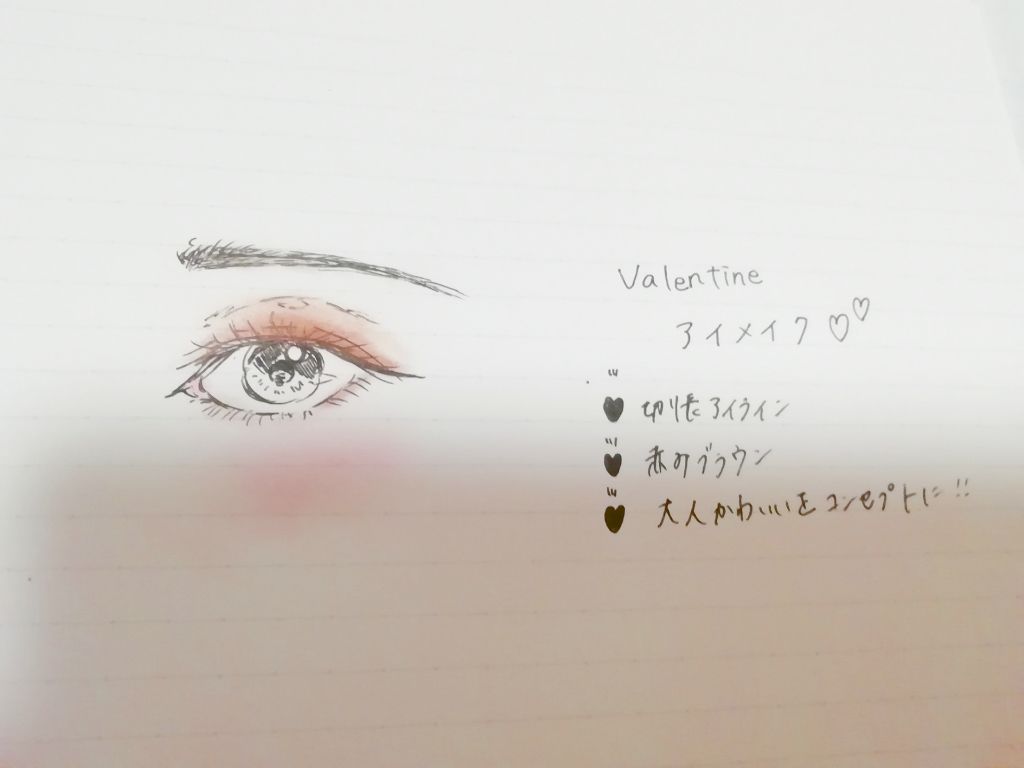 Valentine
アイメイク ♡♡
♥ 切りたアイライン
♥ 赤みブラウン
♥ 大人かわいいをコンセプトに!!